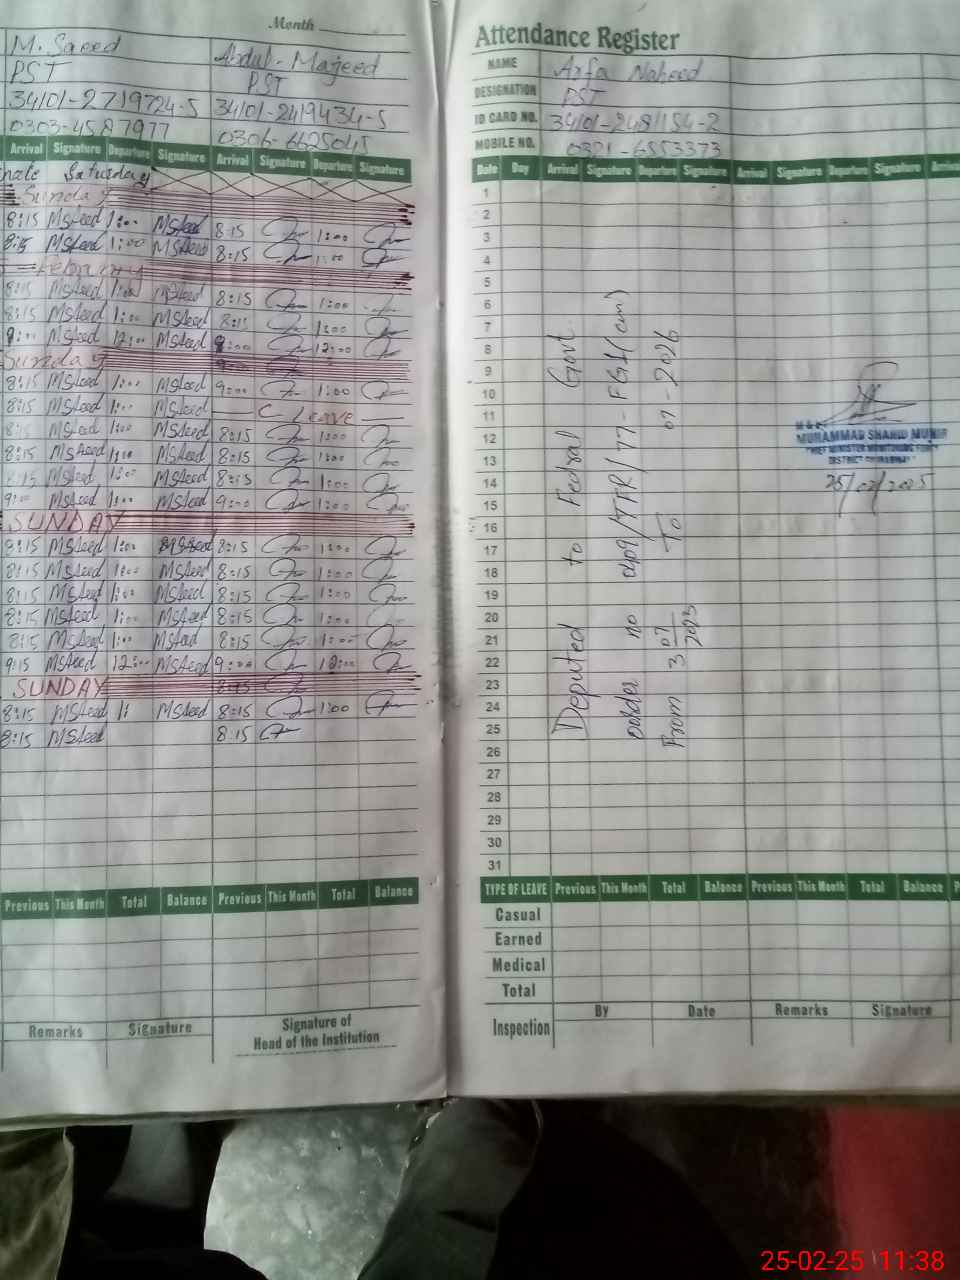 Month
M. Saeed
Abdul-Majeed
PST
PST
34101-2719724-5
34101-2419434-5
0303-4587977
0306-6625045
Arrival Signature Departure Signature Arrival Signature Departure Signature
Saturday
Sunday
8:15 MSaeed 1:00 MSaeed 8:15 1:00
8:15 MSaeed 1:00 MSaeed 8:15 1:00
February
8:15 MSaeed 1:00 MSaeed 8:15 1:00
8:15 MSaeed 1:00 MSaeed 8:15 1:00
9:00 MSaeed 12:00 MSaeed 9:00 12:00
Sunday
8:15 MSaeed 1:00 MSaeed 9:00 1:00
8:15 MSaeed 1:00 MSaeed C Leave
8:15 MSaeed 1:00 MSaeed 8:15 1:00
8:15 MSaeed 1:00 MSaeed 8:15 1:00
8:15 MSaeed 1:00 MSaeed 8:15 1:00
9:00 MSaeed 1:00 MSaeed 9:00 1:00
SUNDAY
8:15 MSaeed 1:00 MSaeed 8:15 1:00
8:15 MSaeed 1:00 MSaeed 8:15 1:00
8:15 MSaeed 1:00 MSaeed 8:15 1:00
8:15 MSaeed 1:00 MSaeed 8:15 1:00
8:15 MSaeed 1:00 MSaeed 8:15 1:00
9:15 MSaeed 12:00 MSaeed 9:00 12:00
SUNDAY
8:15 MSaeed 1: MSaeed 8:15 1:00
8:15 MSaeed 8:15
Previous This Month Total Balance Previous This Month Total Balance
Remarks Signature
Signature of
Head of the Institution
Attendance Register
NAME Arfa Naheed
DESIGNATION PST
ID CARD NO. 34101-2481154-2
MOBILE NO. 0321-6553373
Date Day Arrival Signature Departure Signature Arrival Signature Departure Signature
1
2
3
4
5
6
7
8
9
10
11
12
13
14
15
16
17
18
19
20
21
22
23
24
25
26
27
28
29
30
31
Deputed to Federal Govt
order no
From 3 07 2023 To 07-2026
MUHAMMAD SHAHID MUNIR
25/02/2025
TYPE OF LEAVE Previous This Month Total Balance Previous This Month Total Balance
Casual
Earned
Medical
Total
Inspection By Date Remarks Signature
25-02-25 11:38